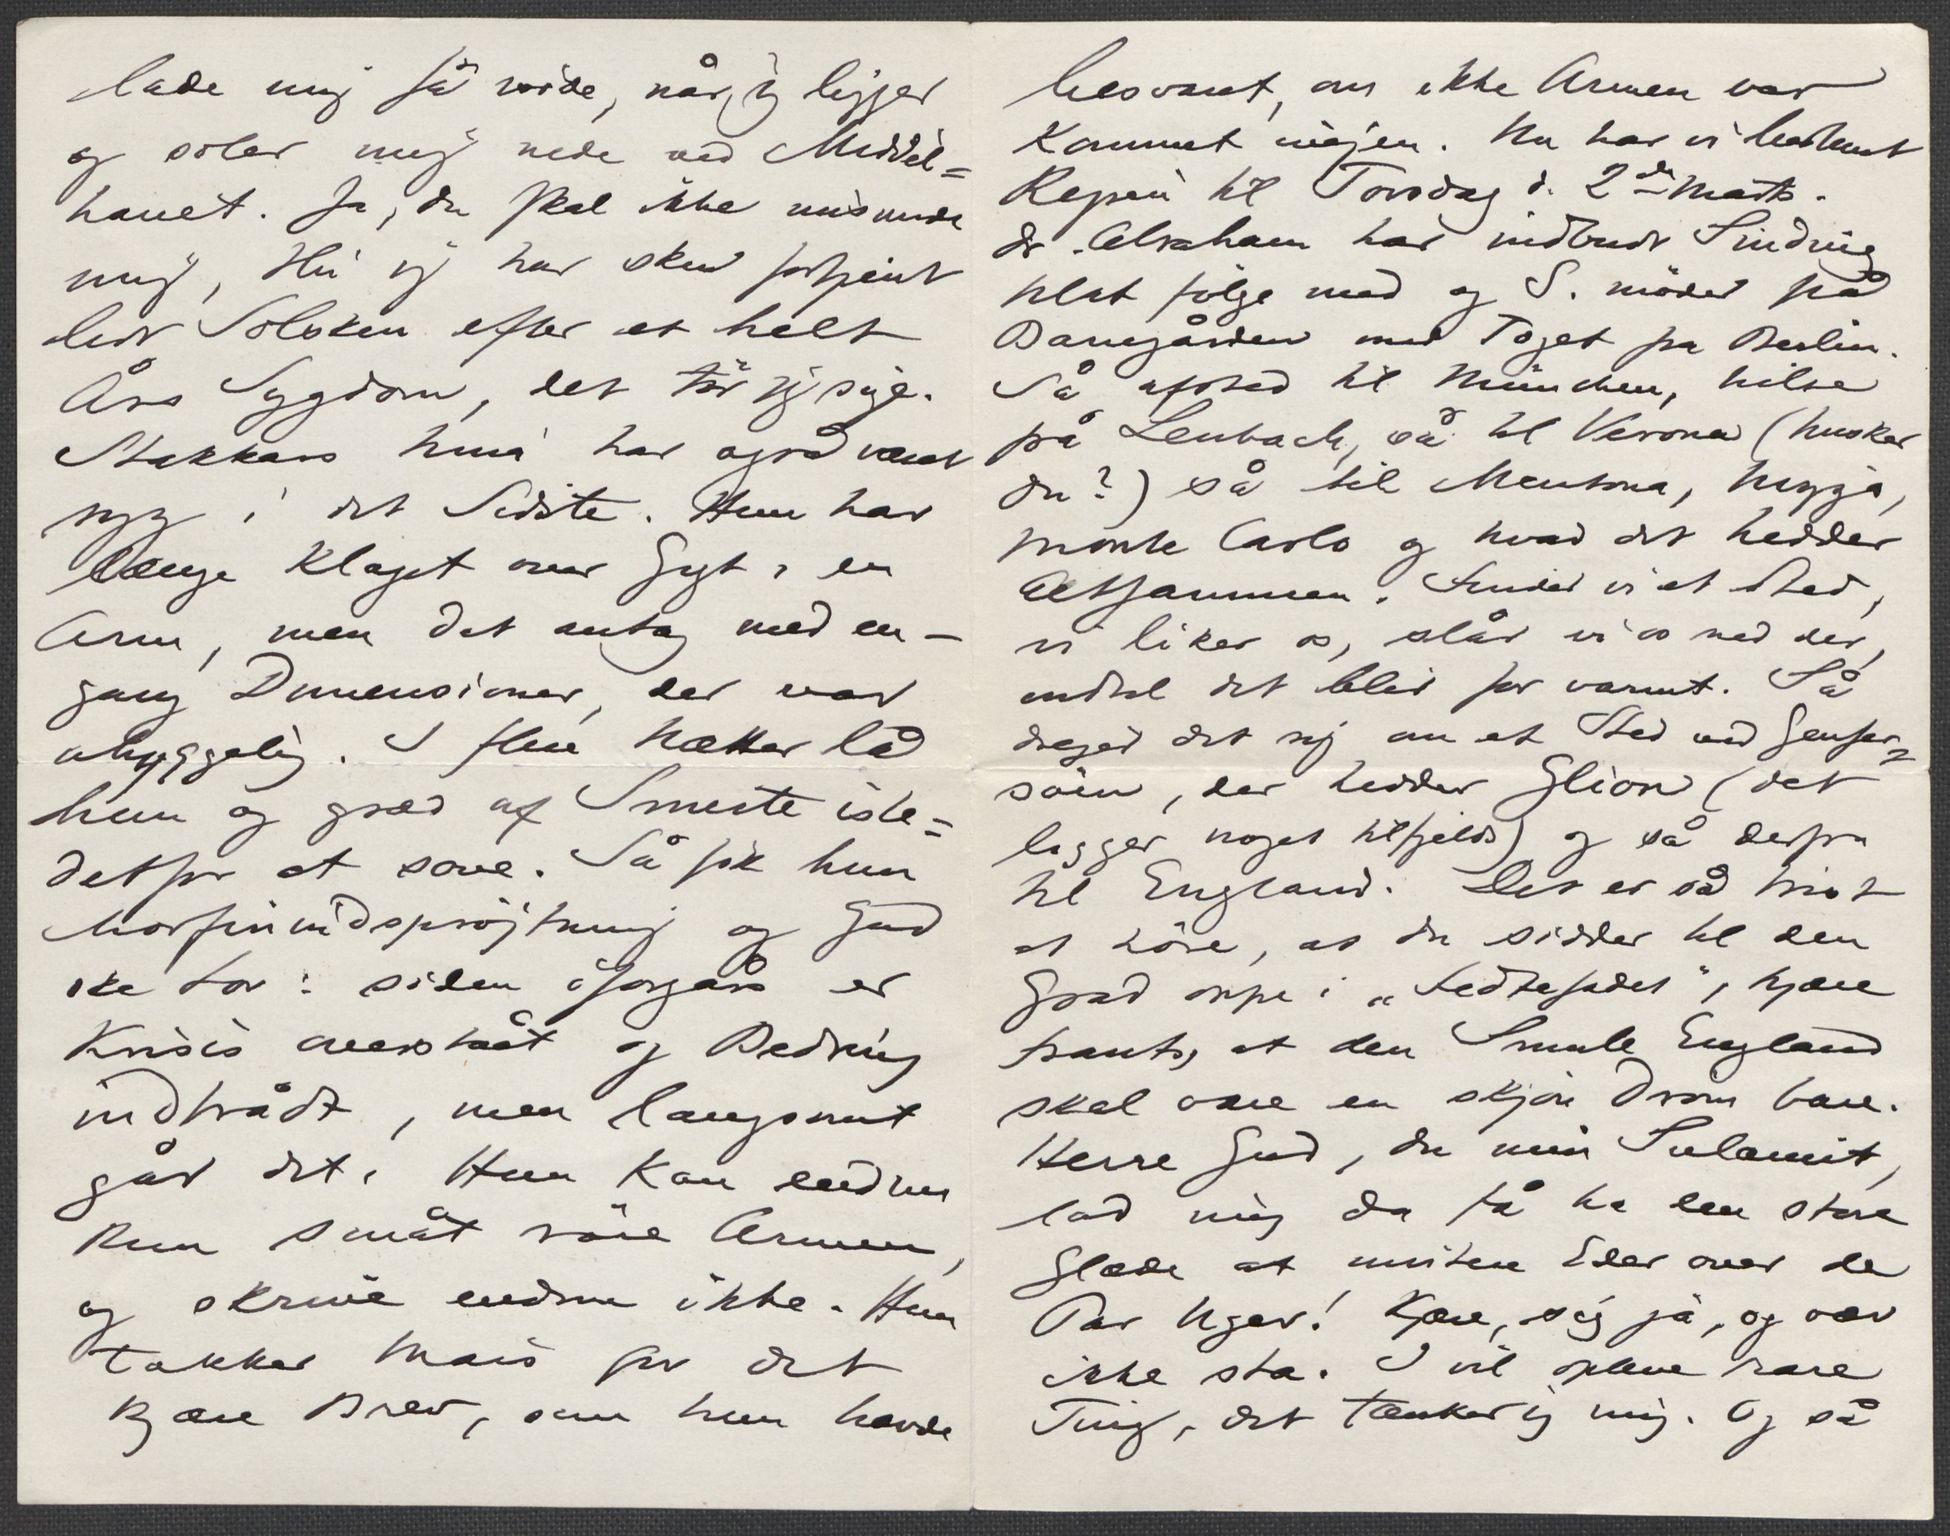 lade mig få vide, når jeg ligger
og soler mig nede ved Middel=
havet. Ja, du skal ikke misunde
mig, thi jeg har sku fortjent
lidt Solskin efter et helt
Års Sygdom, det tör jeg sige.
Stakkars Nina har også været
syg i det Sidste. Hun har
længe klaget over Gigt i en
Arm, men det antog med en-
gang Dimensioner, der var
uhyggelig. I flere Nætter lå
hun og græd af Smerte iste=
detfor at sove. Så fik hun
Morfinindspröjtning og Gud
ske Lov: siden iforgårs er
Krisis overstået og Bedring
indtrådt, men langsomt
går det. Hun kan endnu
kun småt röre Armen,
og skrive endnu ikke. Hun
takker Marie for det
kjære Brev, som hun havde
besvaret, om ikke Armen var
kommet iveien. Nu har vi bestemt
Rejsen til Torsdag d. 2den Marts.
Dr. Abraham har indbudt Sinding
til at fölge med og S. möder på
Banegården med Toget fra Berlin.
Så afsted til München, hilse
på Lenbach, så til Verona (husker
du?) så til Mentona, Nizza,
Monte Carlo og hvad det hedder
Altsammen. Finder vi et Sted,
vi liker os, slår vi os ned der,
indtil det blir for varmt. Så
drejer det sig om et Sted ved Genfer=
söen, der hedder Glion (det
ligger noget tilfjelds) og så derfra
til England. Det er så trist
at höre, at du sidder til den
Grad oppe i "Fedtefadet", kjære
Frants, at den Smule England
skal være en skjön Dröm bare.
Herre Gud, du min Sulamit,
lad mig da få ha den store
Glæde at invitere Eder over de
Par Uger! Kjære, sig ja, og vær
ikke sta. I vil opleve rare
Ting, det tænker jeg mig. Og så